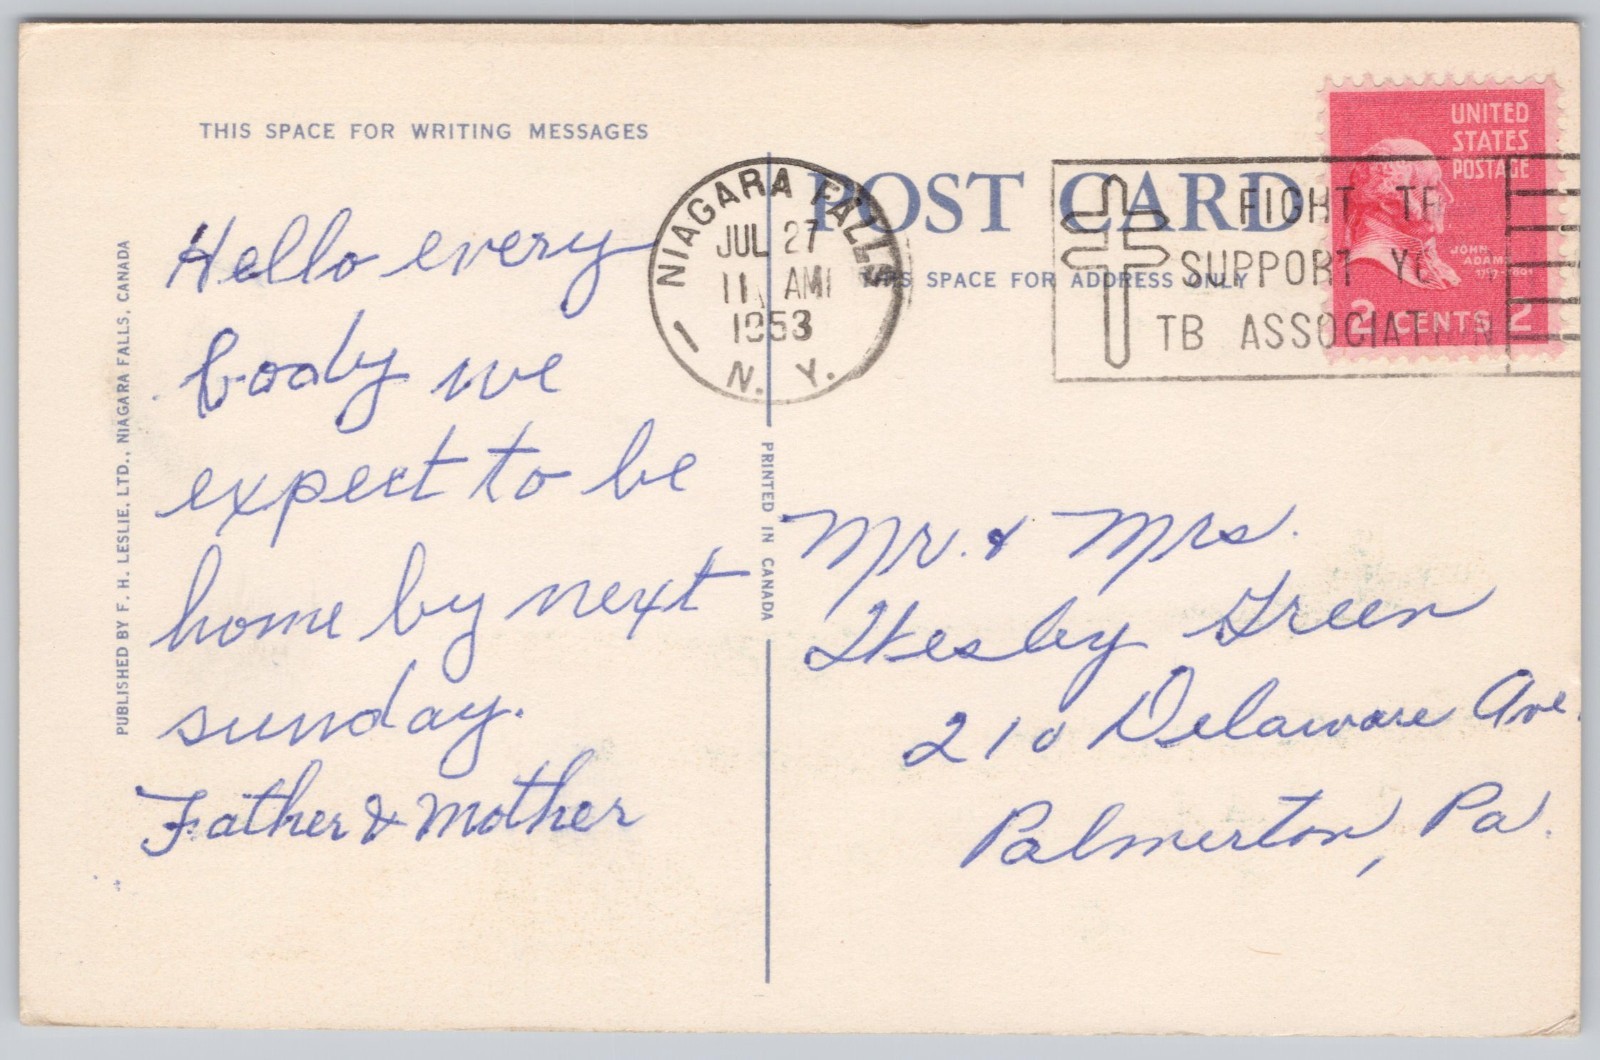 THIS SPACE FOR WRITING MESSAGES
Hello every
body we
expect to be
home by next
sunday.
Father & Mother
PUBLISHED BY F. H. LESLIE, LTD., NIAGARA FALLS, CANADA
PRINTED IN CANADA
NIAGARA FALLS
JUL 27
11 AM
1953
N. Y.
POST CARD
THIS SPACE FOR ADDRESS ONLY
FIGHT TB
SUPPORT YO
TB ASSOCIATION
UNITED
STATES
POSTAGE
JOHN
ADAMS
1797-1801
2 CENTS 2
Mr. & Mrs.
Wesley Green
210 Delaware Ave.
Palmerton, Pa.